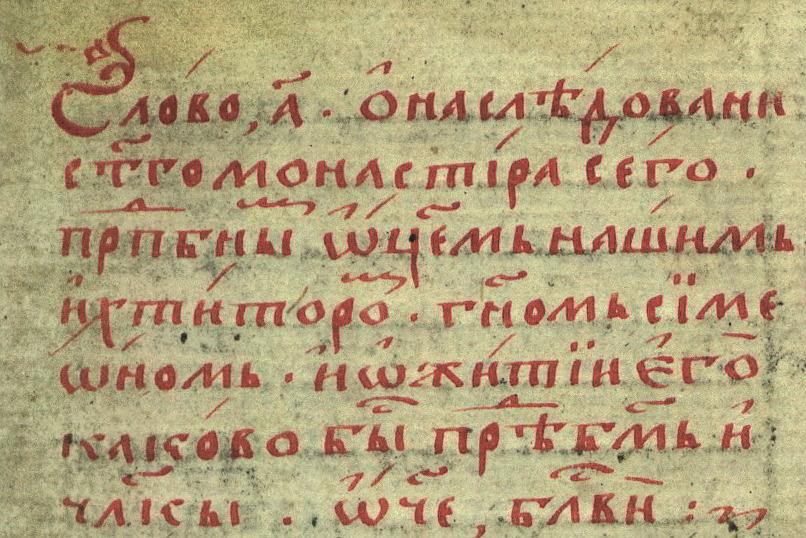 Сло́во, а҃ · ѻ҆насл҄ѣ́довани
ст҃гомонасти́ра сего́ ·
прпⷣбны ѡ҆ц҃емь наши́мь
и҆хти́торо · гн҃омь сїме
ѡ҆номь · и҆ѡ҆жи́тїи е҆го̑
како́во бы прѣⷣбм҃ь и҆
чл҃кы · ѡ҆ч҃е, бл҃вн :~